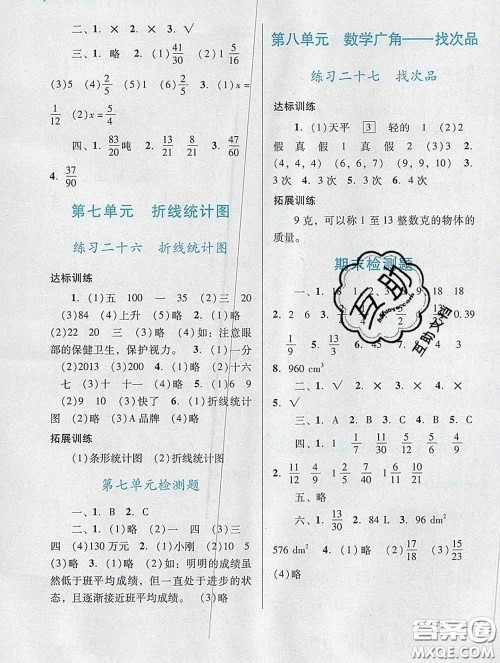 二、1. × 2. × 3. √
三、1. (1)略 (2) 41/30 (3) 13/21
(3)5 (4)2 2. (1)x =
1/12 (2)x = 5/24
四、1. 83/20 吨 2. 13/21 3. 47/60
4. 37/90
第七单元 折线统计图
练习二十六 折线统计图
达标训练
1. (1)五 100 一 35 (2)三 20
(3)84 (4)上升 (5)略 2. (1)略
(2)20 23 (3)略 (4)如：注意眼
部的保健卫生，保护视力。 3. (1)一分
(2)2013 (3)200 4. (1)略 (2)十六
七 (3)十 十一 (4)略 5. (1)略
(2)9 (3)快了 6. (1)折线统计
图 (2)略 (3)A 品牌 (4)略
拓展训练
(1)条形统计图 (2)折线统计图
第七单元检测题
一、1. B 2. C
二、1. (1)略 (2)一 四 三 四
(4)130万元 2. (1)小刚 (2)10 8
5 3. (1)略 (2)如：明明的成绩虽
然低于班平均成绩，但一直处于进步的状
态，且逐渐接近班平均成绩。 (3)略
第八单元 数学广角——找次品
练习二十七 找次品
达标训练
1. (1)天平 3 轻的 (2)2
假 真 假 1 真 真 真 2
3. (4，4，4) (6，6，6) (7，7，8)
3次 4. 3次 5. 4次
拓展训练
9 克，可以称 1 至 13 整数克的物体的
质量。
期末检测题
一、1. 18
2. 6 0.39
8. 960 cm³
5. √
三、1. A 2. B 3. C 4. C
2. 11/12
五、略
六、1. 13/30 2. 84 L 3.
576 dm² (2)略 (3)略
(4)略
互助
互助文档
答案圈
MXQE.COM